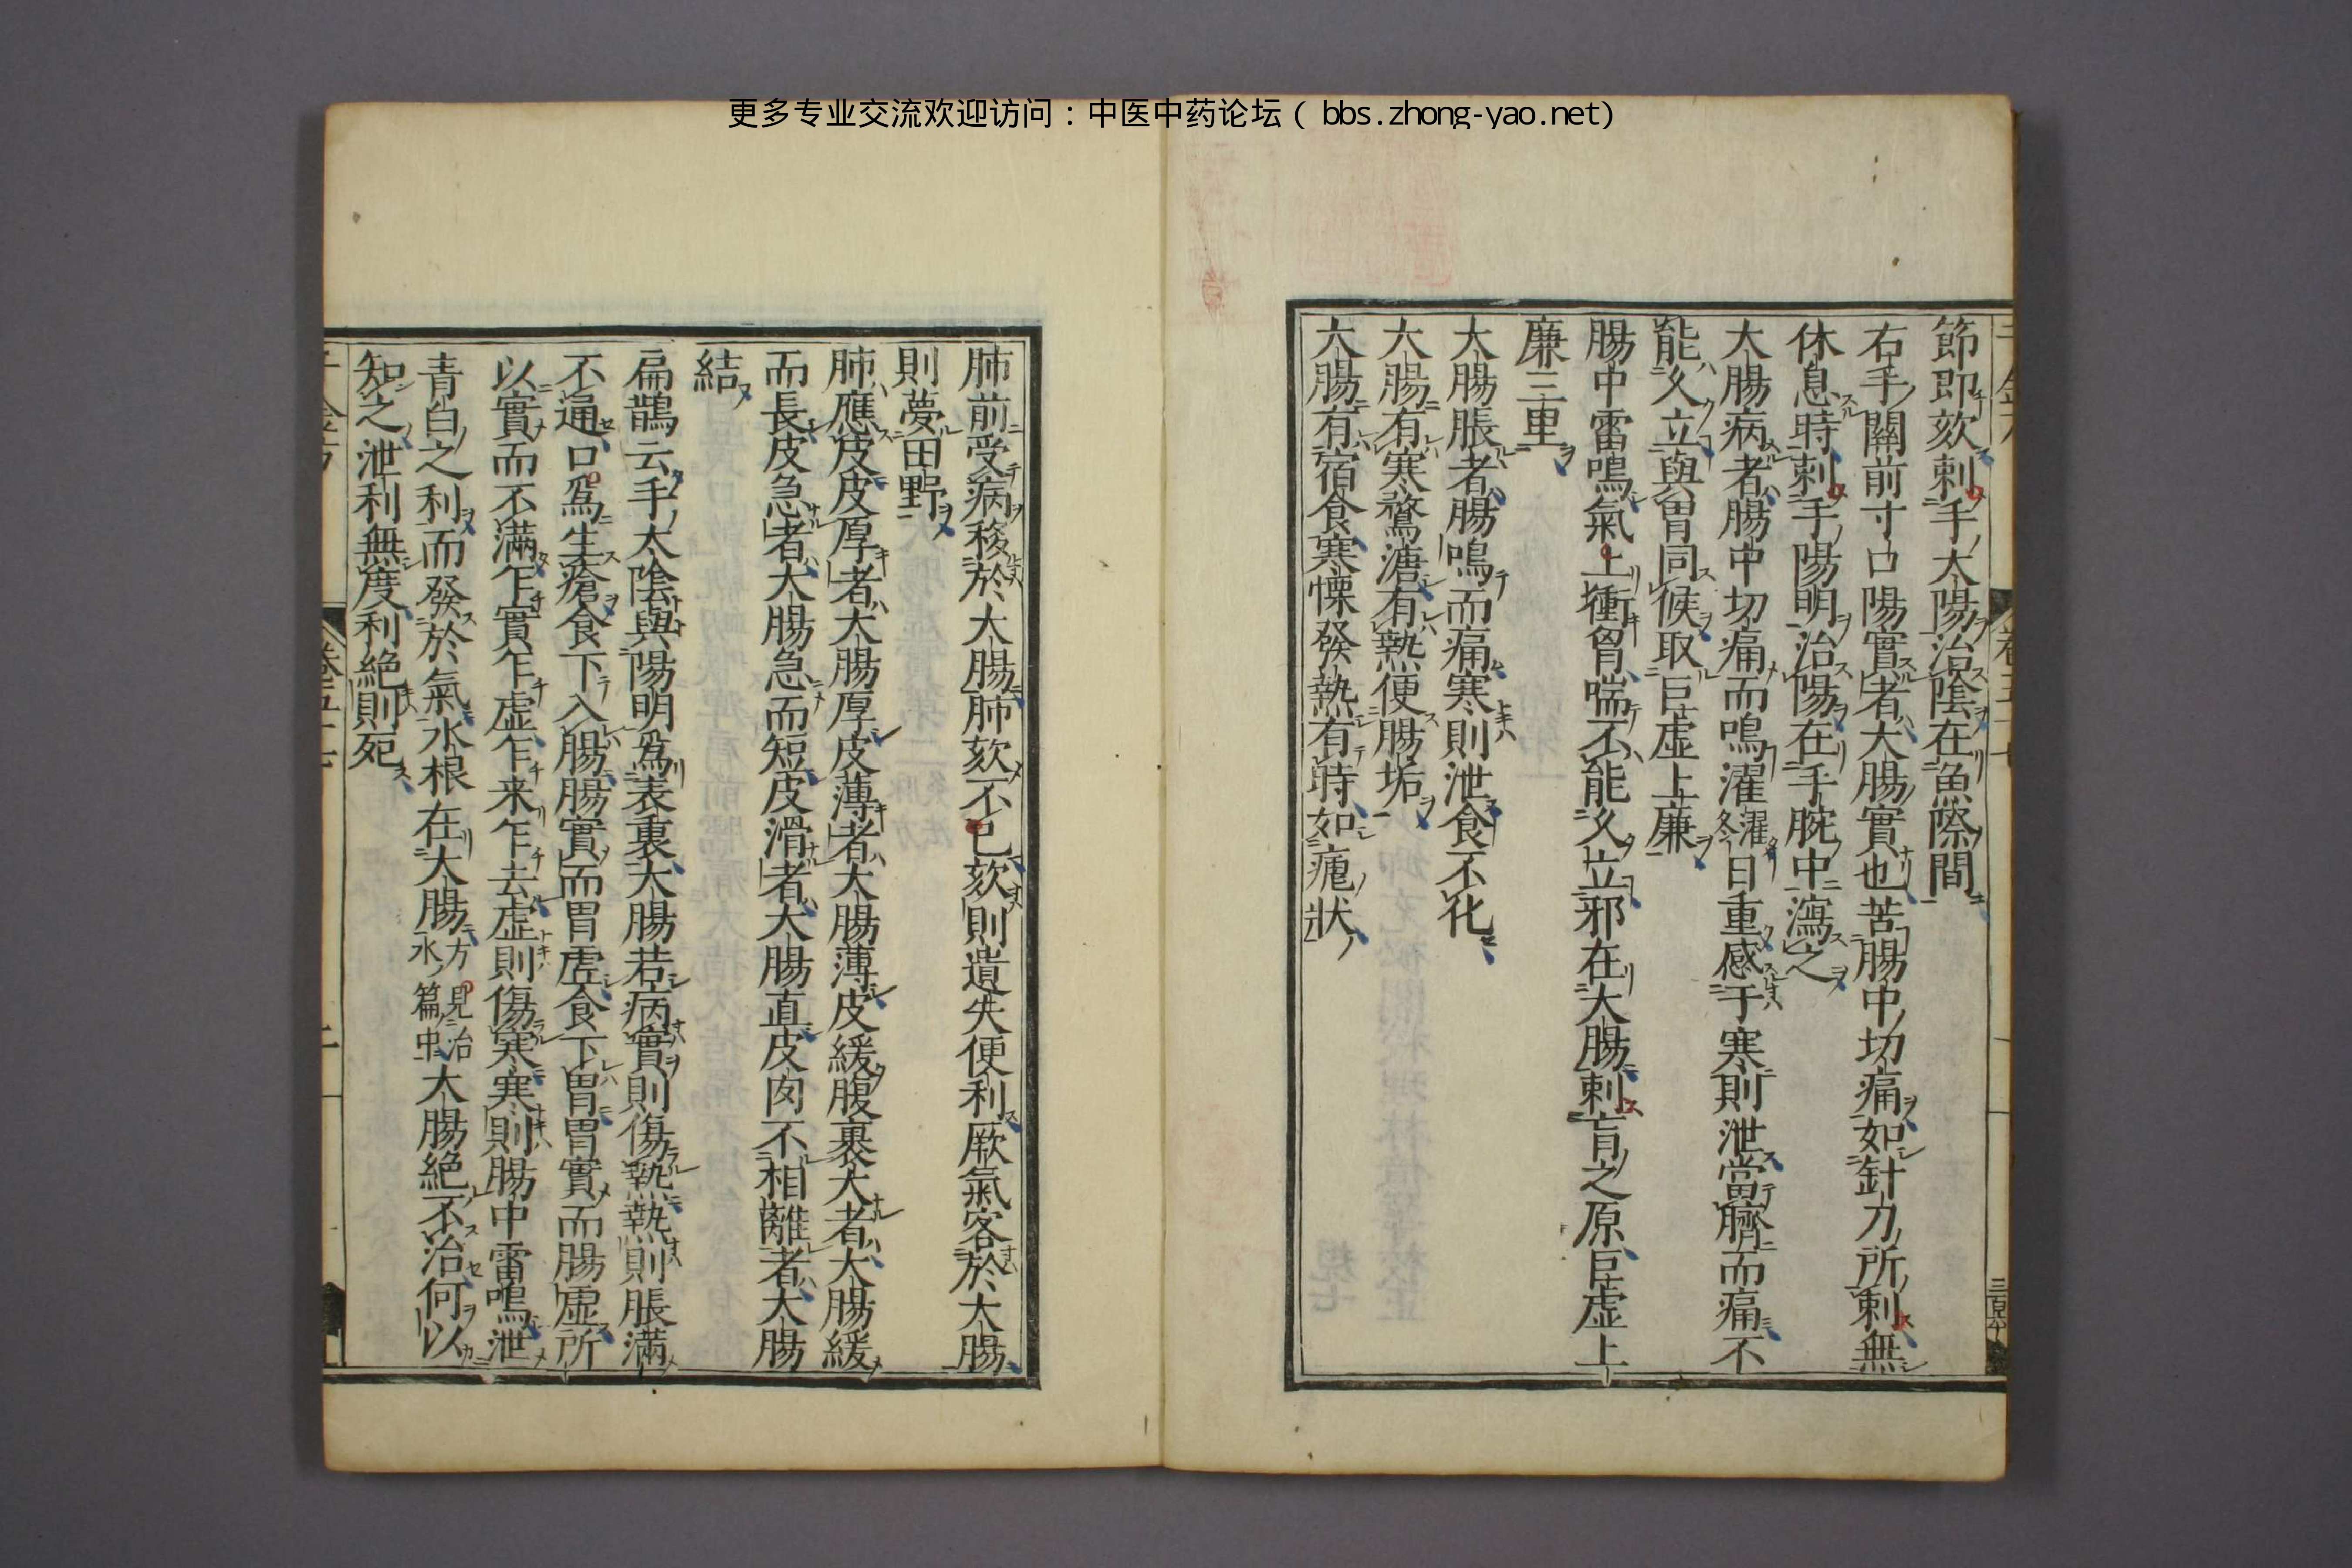 更多专业交流欢迎访问：中医中药论坛（bbs.zhong-yao.net）
節即欬刺手太陽治陰在魚際間
右手關前寸口陽實者大腸實也苦腸中切痛如針刀所刺無
休息時刺手陽明治陽在手腕中瀉之
大腸病者腸中切痛而鳴濯濯冬日重感于寒則泄當臍而痛不
能久立與胃同候取巨虚上廉
腸中雷鳴氣上衝胷喘不能久立邪在大腸刺肓之原巨虚上
廉三里
大腸脹者腸鳴而痛寒則泄食不化
大腸有寒鶩溏有熱便腸垢
大腸有宿食寒慄發熱有時如瘧狀
肺前受病移於大腸肺欬不已欬則遺失便利厥氣客於大腸
則夢田野
肺應皮皮厚者大腸厚皮薄者大腸薄皮緩腹裹大者大腸緩
而長皮急者大腸急而短皮滑者大腸直皮肉不相離者大腸
結
扁鵲云手太陰與陽明爲表裏大腸若病實則傷熱熱則脹滿
不通口爲生瘡食下入腸腸實而胃虚食下胃胃實而腸虚所
以實而不滿乍實乍虚乍来乍去虚則傷寒寒則腸中雷鳴泄
青白之利而發於氣水根在大腸方見治水篇中大腸絶不治何以
知之泄利無度利絶則死